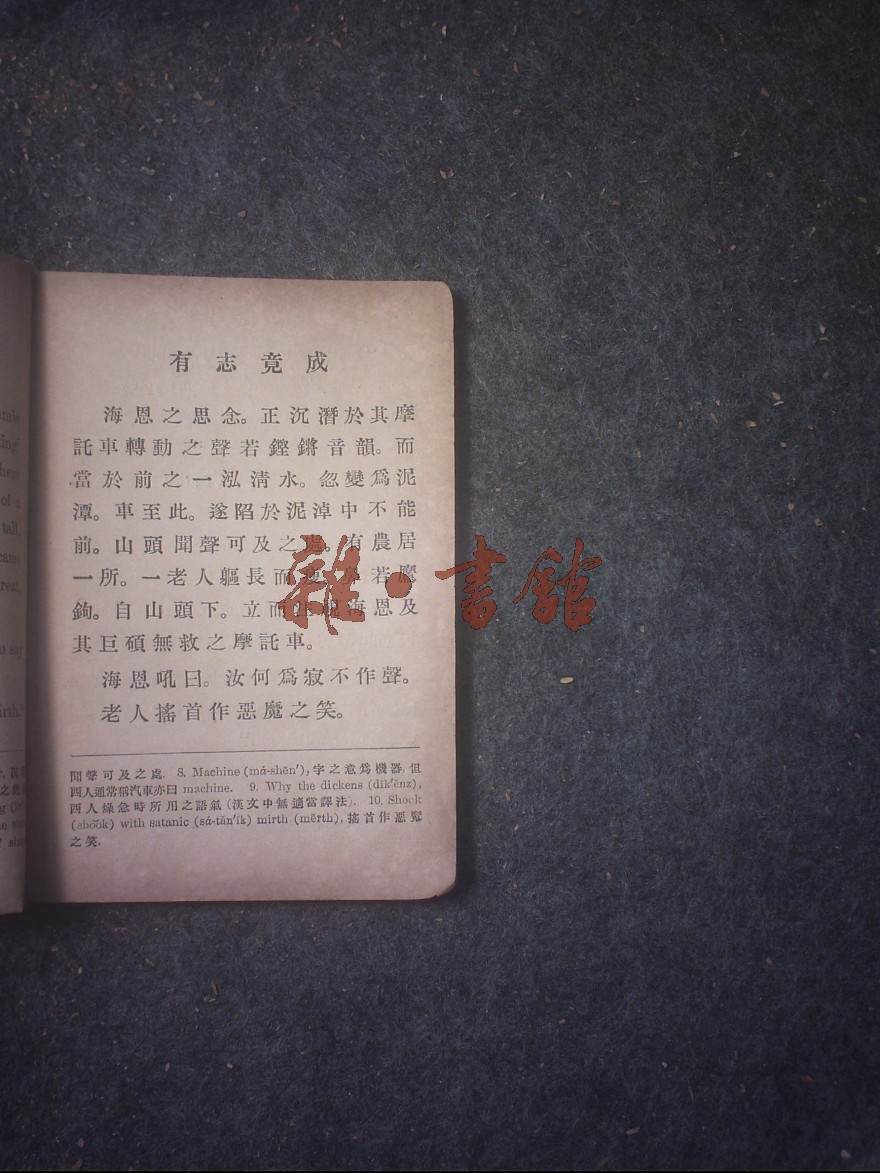 有志竟成
海恩之思念。正沉潛於其摩
託車轉動之聲若鏗鏘音韻。而
當於前之一泓清水。忽變爲泥
潭。車至此。遂陷於泥淖中不能
前。山頭聞聲可及之處。有農居
一所。一老人軀長而瘦。鼻若鷹
鉤。自山頭下。立而 海恩及
其巨碩無救之摩託車。
海恩吼曰。汝何爲寂不作聲。
老人搖首作惡魔之笑。
聞聲可及之處. 8. Machine (má-shēn′), 字之意爲機器, 但
西人通常稱汽車亦曰 machine. 9. Why the dickens (dĭk′ĕnz),
西人燥急時所用之語氣 (漢文中無適當譯法). 10. Shook
(shŏŏk) with satanic (sá-tăn′ĭk) mirth (mërth), 搖首作惡魔
之笑.
雜·書館
of a
tall,
came
u say